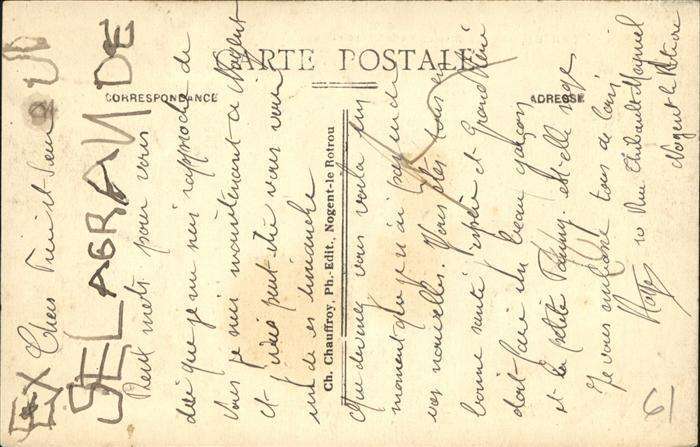 CARTE POSTALE
CORRESPONDANCE
ADRESSE
Ch. Chauffroy, Ph.-Edit., Nogent-le Rotrou
Chers
Deux mots pour vous
dire que je me suis rapproché de
vous je suis maintenant à Nogent
et j'irai peut-être vous voir
un de ces dimanche
Que devenez vous voilà un
moment que je n'ai pas eu de
vos nouvelles. Vous êtes tous en
bonne santé j'espère et Grand René
doit faire un beau garçon
et la petite Fanny est-elle sage
Je vous embrasse tous de loin
10 Rue Thibault
Nogent le Rotrou
EX
SELAGRANDE
6